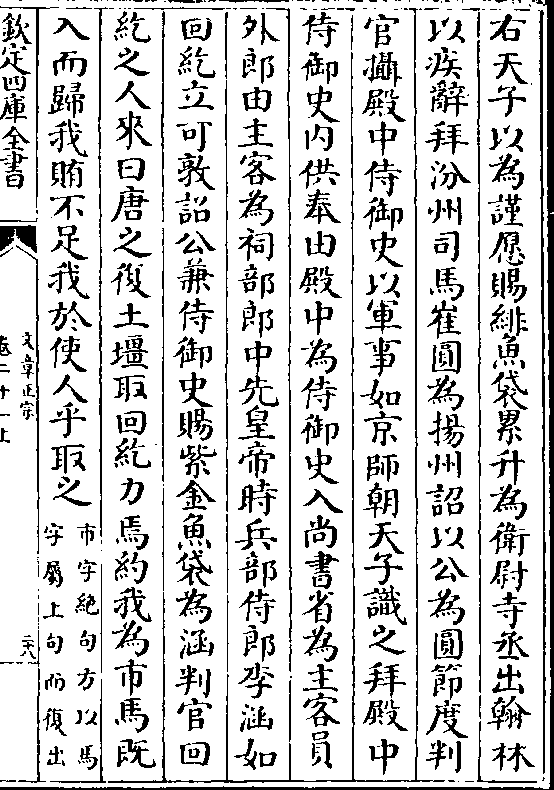 右天子以為謹愿賜緋魚袋累升為衛尉寺丞出翰林
以疾辭拜汾州司馬崔圓為揚州詔以公為圓節度判
官攝殿中侍御史以軍事如京師朝天子識之拜殿中
侍御史内供奉由殿中為侍御史入尚書省為主客員
外郎由主客為祠部郎中先皇帝時兵部侍郎李涵如
回紇立可敦詔公兼侍御史賜紫金魚袋為涵判官回
紇之人來曰唐之復土壃取回紇力焉約我為市馬既
入而歸我賄不足我於使人乎取之
市字絶句方以馬
字屬上句而復出
欽定四庫全書
文章正宗
卷二十一上
二十八